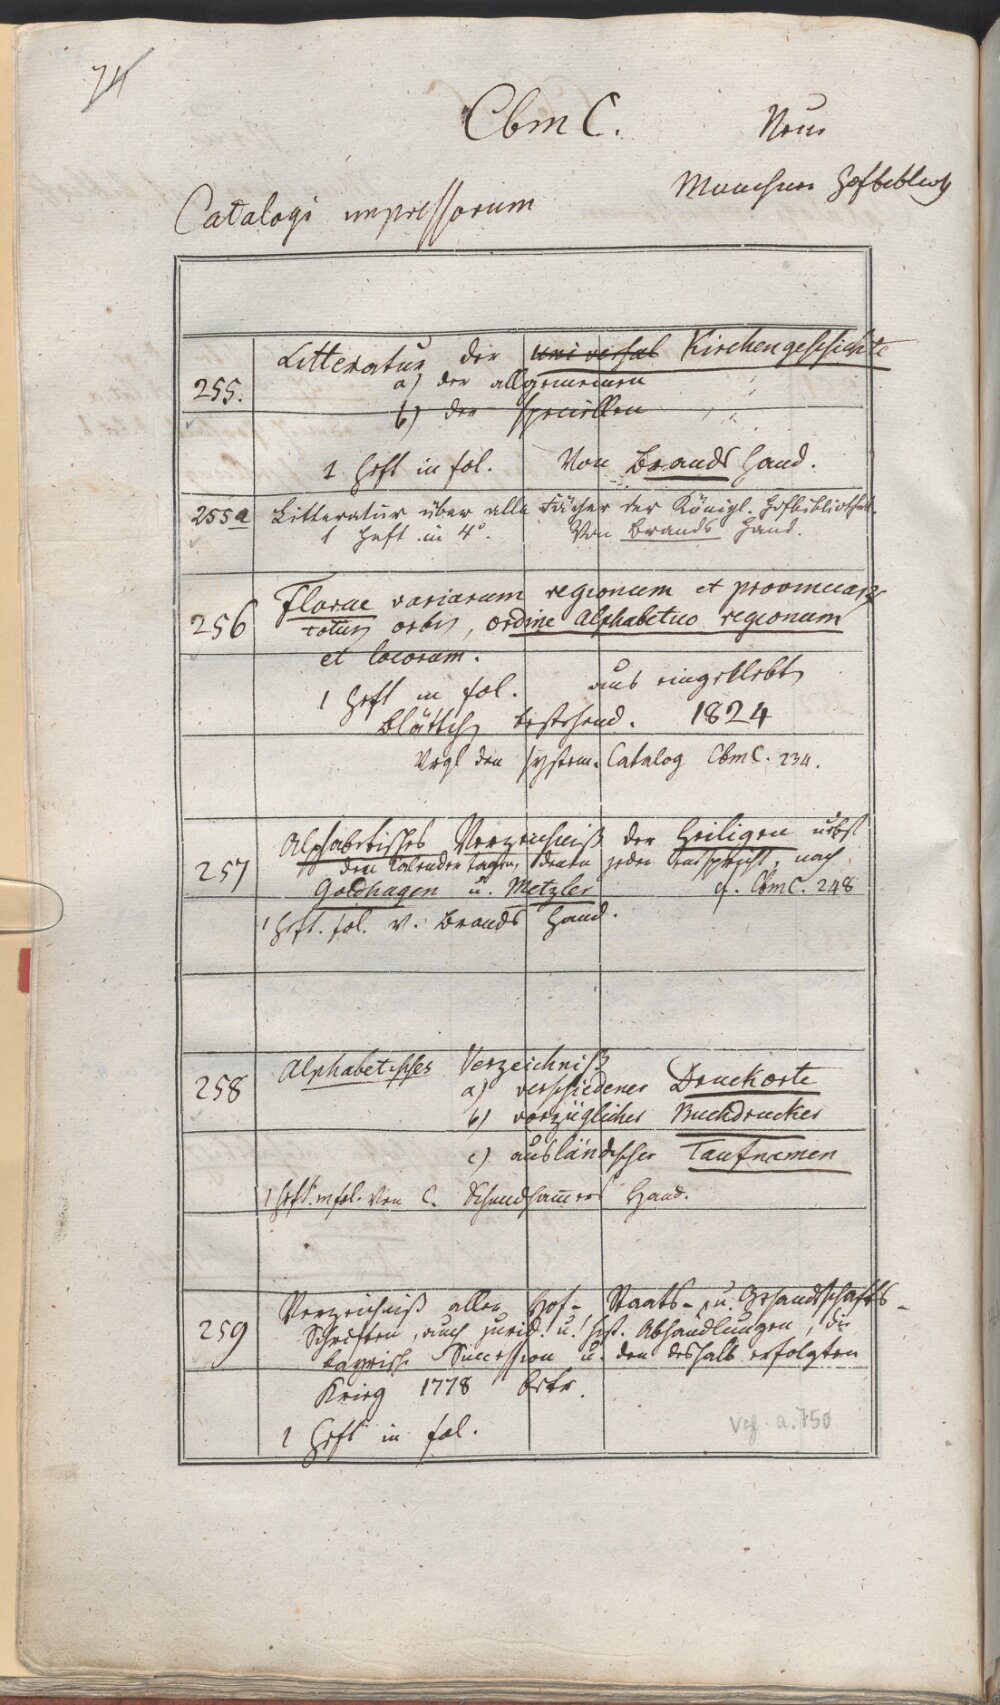 74
Cbm C.
Neue
Münchner Hofbiblioth
Catalogi impressorum
255.
Litteratur der universal Kirchengeschichte
a) der allgemeinen
b) der speciellen
1 Heft in fol. Von Brands Hand.
255a Litteratur über alle Fächer der Königl. Hofbibliothek.
1 Heft in 4°. Von Brands Hand.
256
Florae variarum regionum et provinciarum
totius orbis, ordine alphabetico regionum
et locorum.
1 Heft in fol. aus eingeklebten
Blättchen bestehend. 1824
Vergl den system. Catalog CbmC. 234.
257
Alphabetisches Verzeichniß der Heiligen nebst
den Calendertagen, denen jeder entspricht, nach
Goldhagen u. Metzler cf. CbmC. 248
1 Heft. fol. v. Brands Hand.
258
Alphabetisches Verzeichniß
a) verschiedener Druckorte
b) vorzüglicher Buchdrucker
c) ausländischer Taufnamen
1 Heft. in fol. Von C. Schmidhamers Hand.
259
Verzeichniß aller Hof-, Staats- u. Gesandtschafts-
Schriften, auch jurid. u. hist. Abhandlungen, die
bayrische Succession u. den deshalb erfolgten
Krieg 1778 betr.
1 Heft in fol.
a. 750